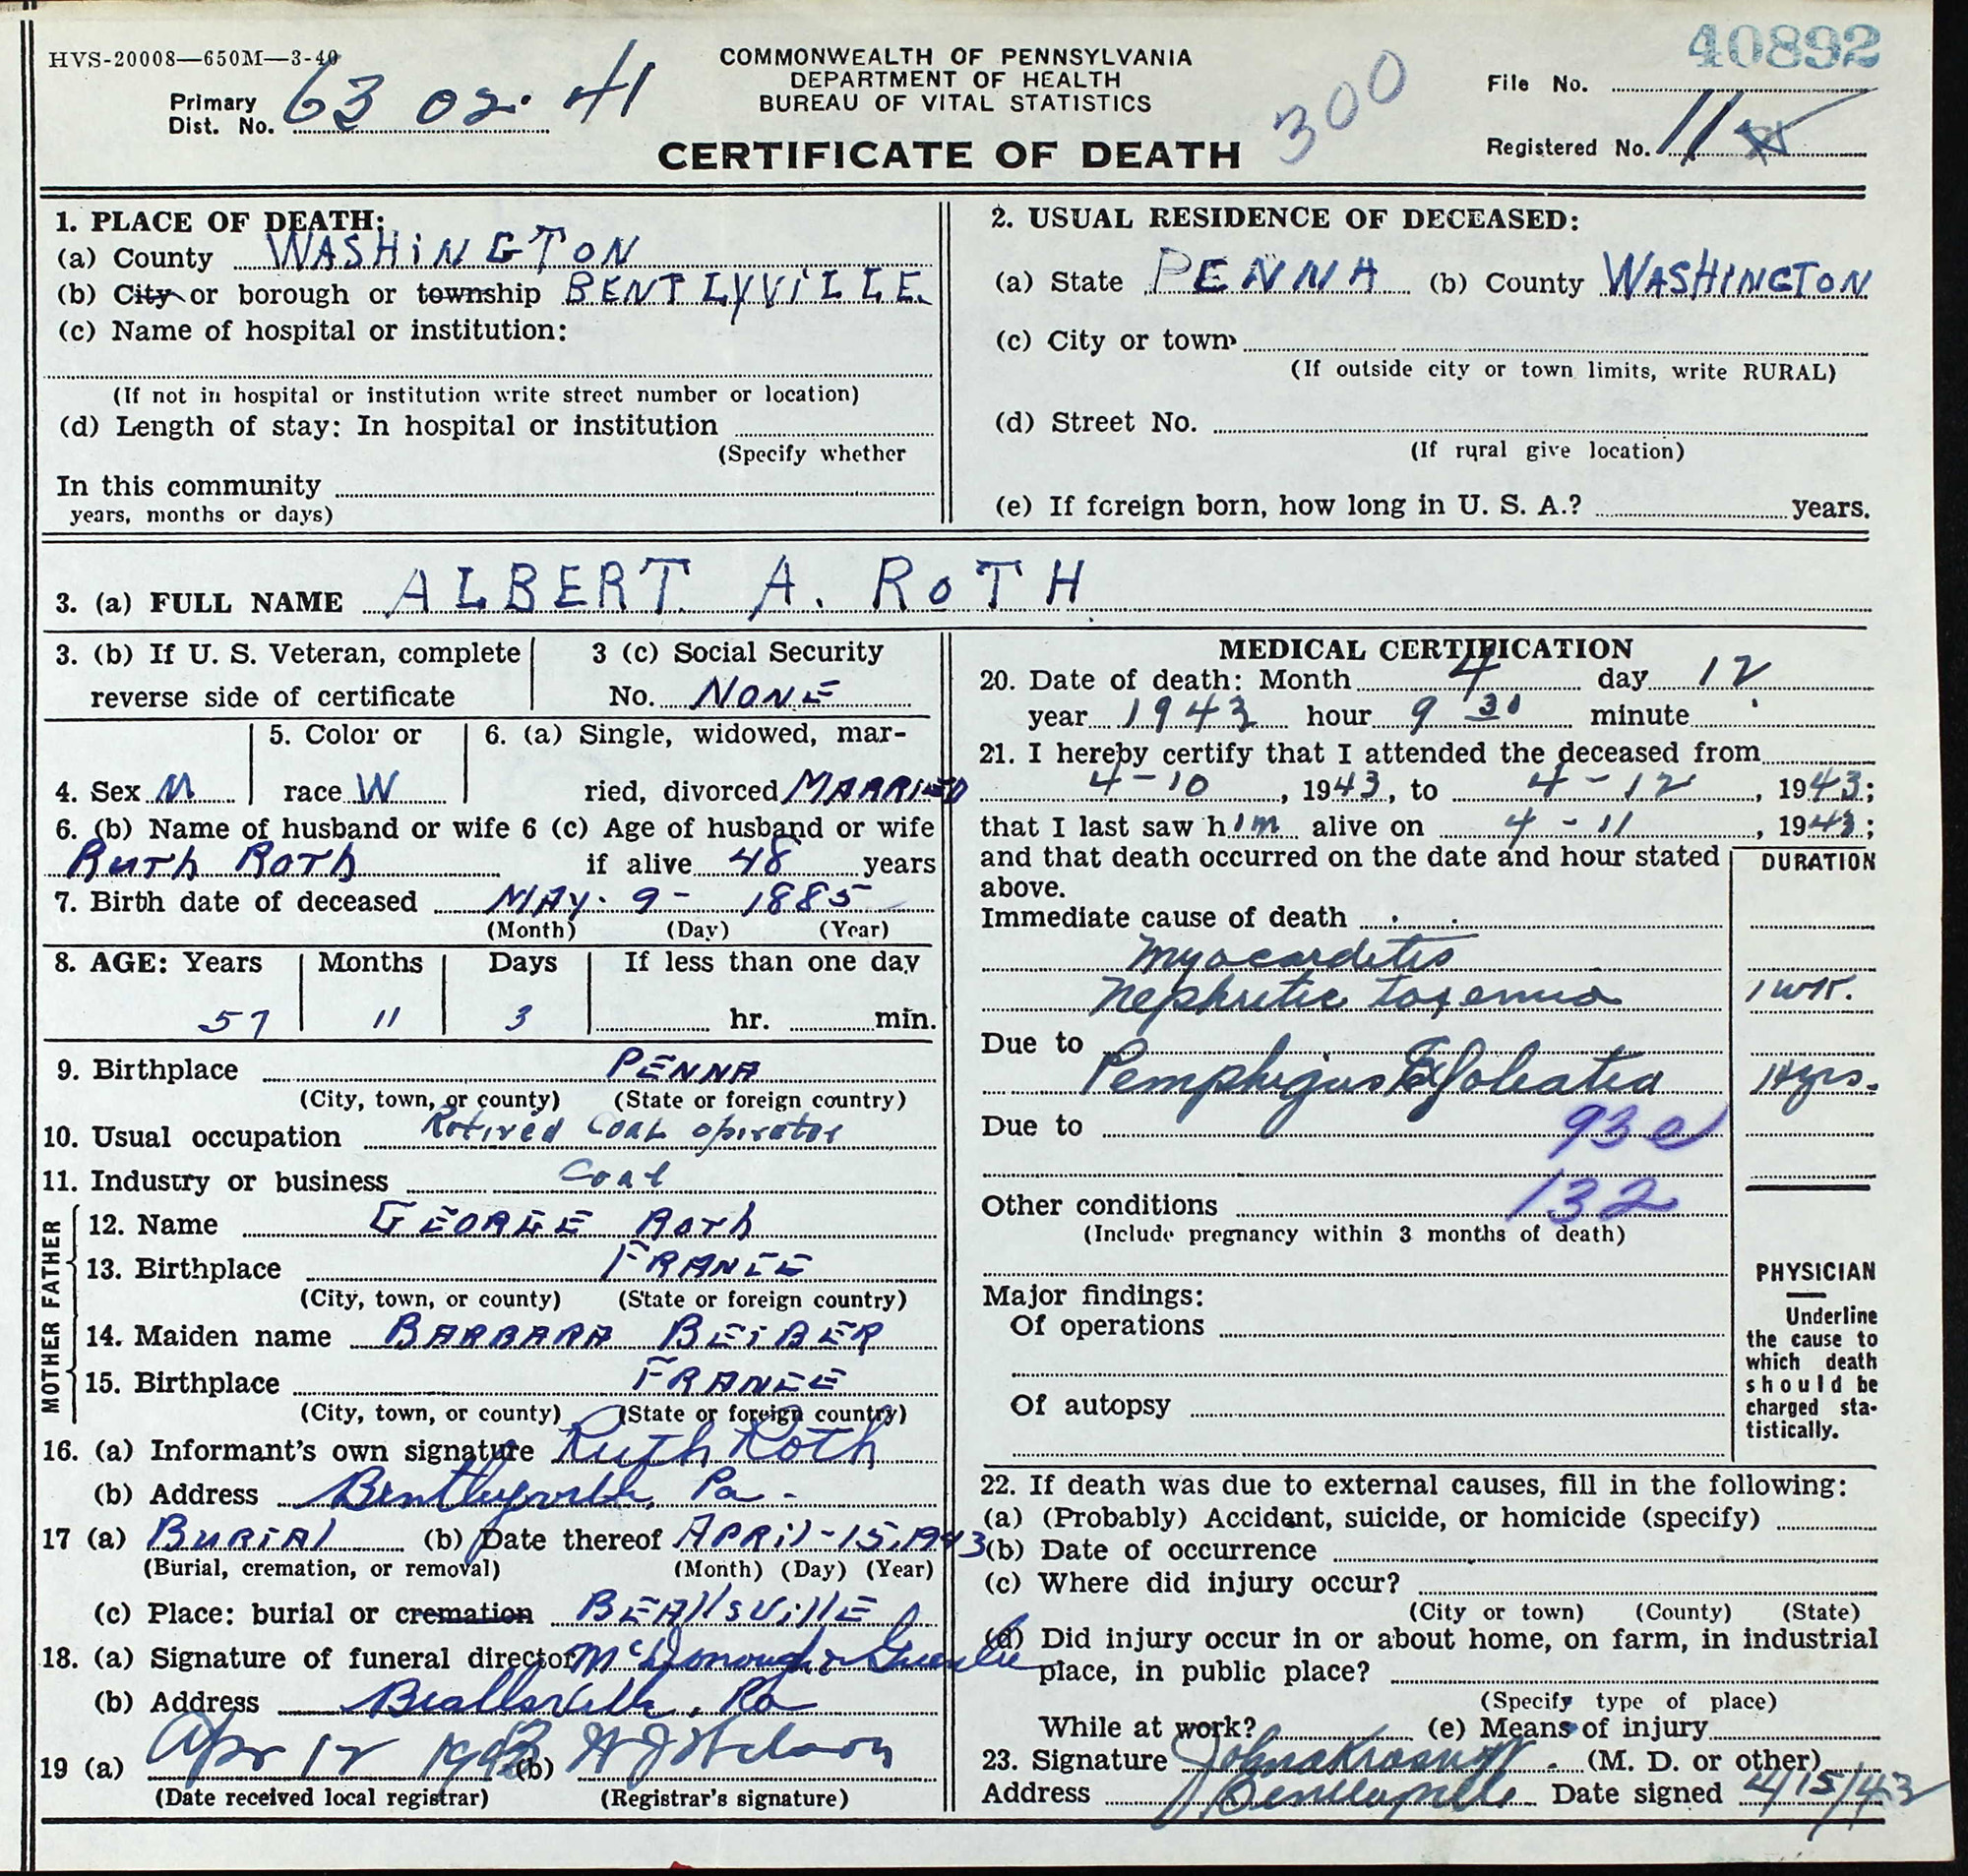 HVS-20008—650M—3-40
40892
Primary Dist. No. 63 02. 41
COMMONWEALTH OF PENNSYLVANIA
DEPARTMENT OF HEALTH
BUREAU OF VITAL STATISTICS
CERTIFICATE OF DEATH
300
File No.
Registered No. 11
1. PLACE OF DEATH:
(a) County WASHINGTON
(b) City or borough or township BENTLYVILLE
(c) Name of hospital or institution:
(If not in hospital or institution write street number or location)
(d) Length of stay: In hospital or institution
(Specify whether
In this community
years, months or days)
2. USUAL RESIDENCE OF DECEASED:
(a) State PENNA (b) County WASHINGTON
(c) City or town
(If outside city or town limits, write RURAL)
(d) Street No.
(If rural give location)
(e) If foreign born, how long in U. S. A.? years.
3. (a) FULL NAME ALBERT A. ROTH
3. (b) If U. S. Veteran, complete
reverse side of certificate
3 (c) Social Security
No. NONE
4. Sex M
5. Color or
race W
6. (a) Single, widowed, mar-
ried, divorced MARRIED
6. (b) Name of husband or wife 6 (c) Age of husband or wife
Ruth Roth if alive 48 years
7. Birth date of deceased MAY. 9 - 1885
(Month) (Day) (Year)
8. AGE: Years Months Days If less than one day
57 11 3 hr. min.
9. Birthplace PENNA
(City, town, or county) (State or foreign country)
10. Usual occupation Retired Coal operator
11. Industry or business Coal
FATHER
12. Name GEORGE Roth
13. Birthplace FRANCE
(City, town, or county) (State or foreign country)
MOTHER
14. Maiden name BARBARA BEIBER
15. Birthplace FRANCE
(City, town, or county) (State or foreign country)
16. (a) Informant's own signature Ruth Roth
(b) Address Bentleyville, Pa -
17 (a) BURIAL (b) Date thereof APRIL - 15, 1943
(Burial, cremation, or removal) (Month) (Day) (Year)
(c) Place: burial or cremation BEAllsvillE
18. (a) Signature of funeral director McDonough &
(b) Address Beallsville, Pa
19 (a) Apr 12 1943 (b)
(Date received local registrar) (Registrar's signature)
MEDICAL CERTIFICATION
20. Date of death: Month 4 day 12
year 1943 hour 9 30 minute
21. I hereby certify that I attended the deceased from
4-10, 1943, to 4-12, 1943;
that I last saw him alive on 4-11, 1943;
and that death occurred on the date and hour stated
above.
DURATION
Immediate cause of death
Myocarditis
Nephritic toxemia 1 wk.
Due to
Pemphigus Exfoliatia
Due to 93 e
Other conditions 132
(Include pregnancy within 3 months of death)
Major findings:
Of operations
Of autopsy
PHYSICIAN
Underline
the cause to
which death
should be
charged sta-
tistically.
22. If death was due to external causes, fill in the following:
(a) (Probably) Accident, suicide, or homicide (specify)
(b) Date of occurrence
(c) Where did injury occur?
(City or town) (County) (State)
(d) Did injury occur in or about home, on farm, in industrial
place, in public place?
(Specify type of place)
While at work? (e) Means of injury
23. Signature (M. D. or other)
Address Date signed 4/15/43